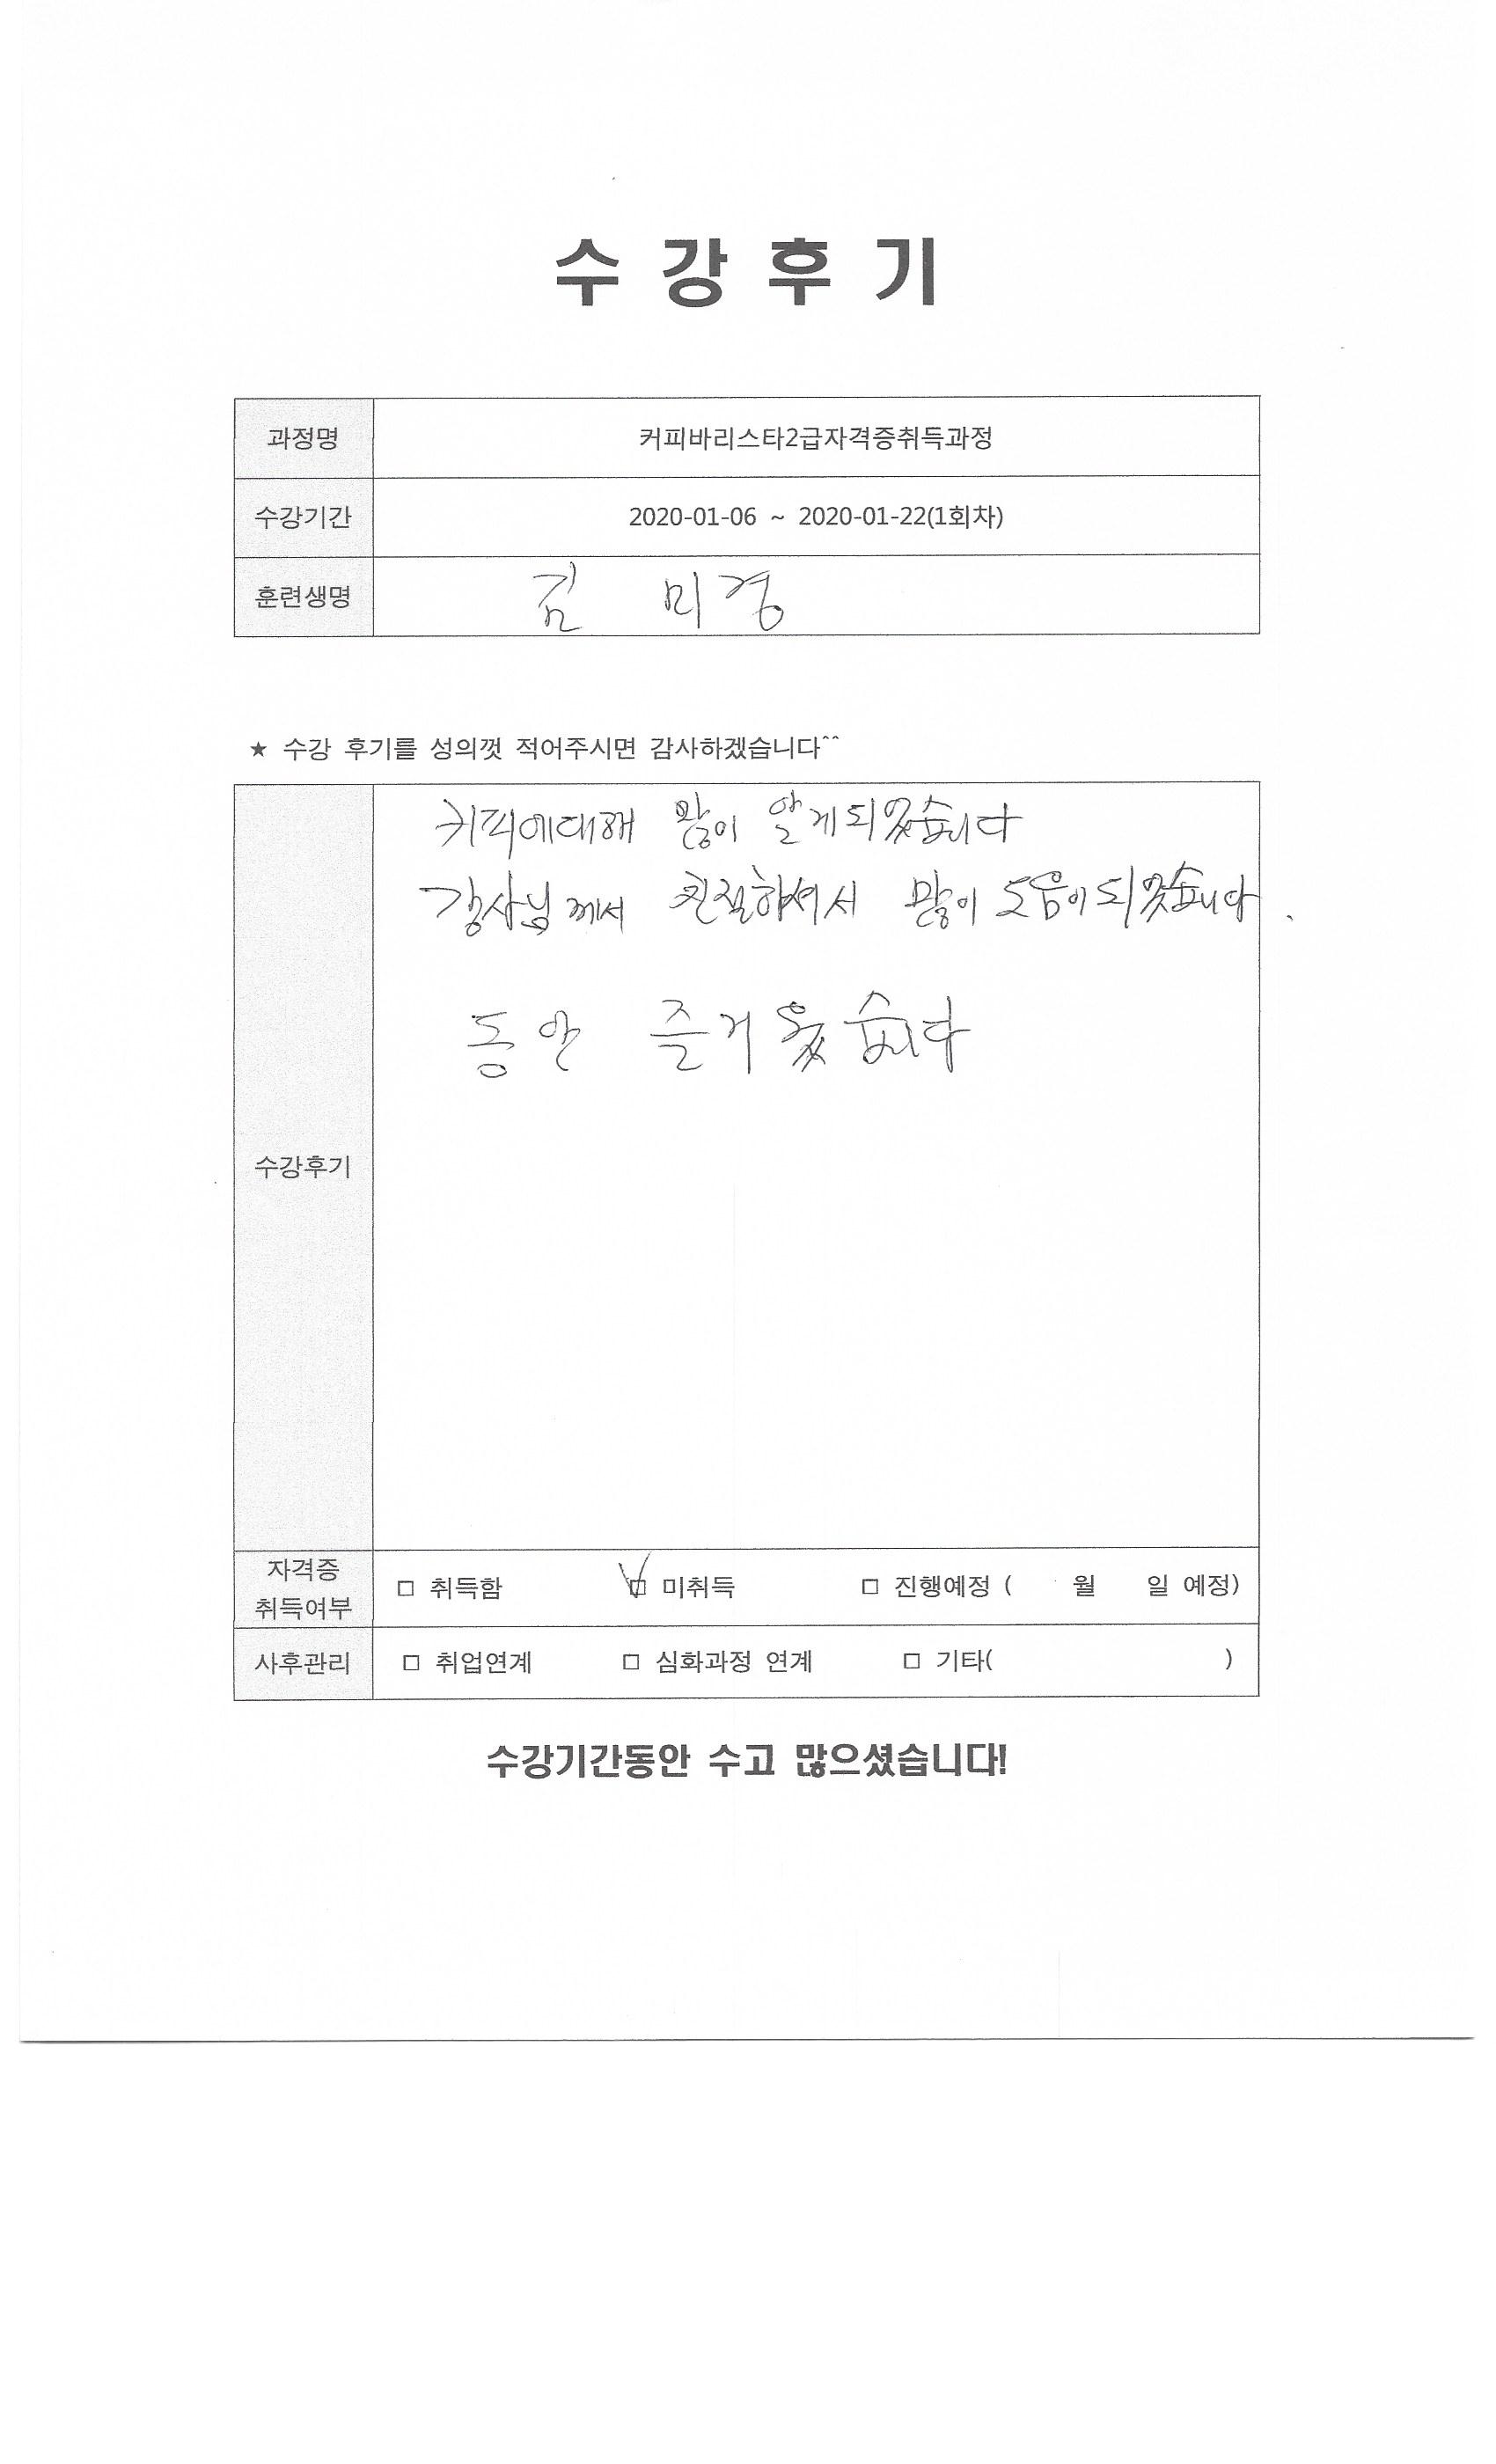 수 강 후 기
과정명 커피바리스타2급자격증취득과정
수강기간 2020-01-06 ~ 2020-01-22(1회차)
훈련생명 김 미경
★ 수강 후기를 성의껏 적어주시면 감사하겠습니다^^
커피에대해 많이 알게되었습니다
강사님께서 친절하셔서 많이 도움이되었습니다.
동안 즐거웠습니다
수강후기
자격증
취득여부
□ 취득함 ☑ 미취득 □ 진행예정 ( 월 일 예정)
사후관리 □ 취업연계 □ 심화과정 연계 □ 기타( )
수강기간동안 수고 많으셨습니다!